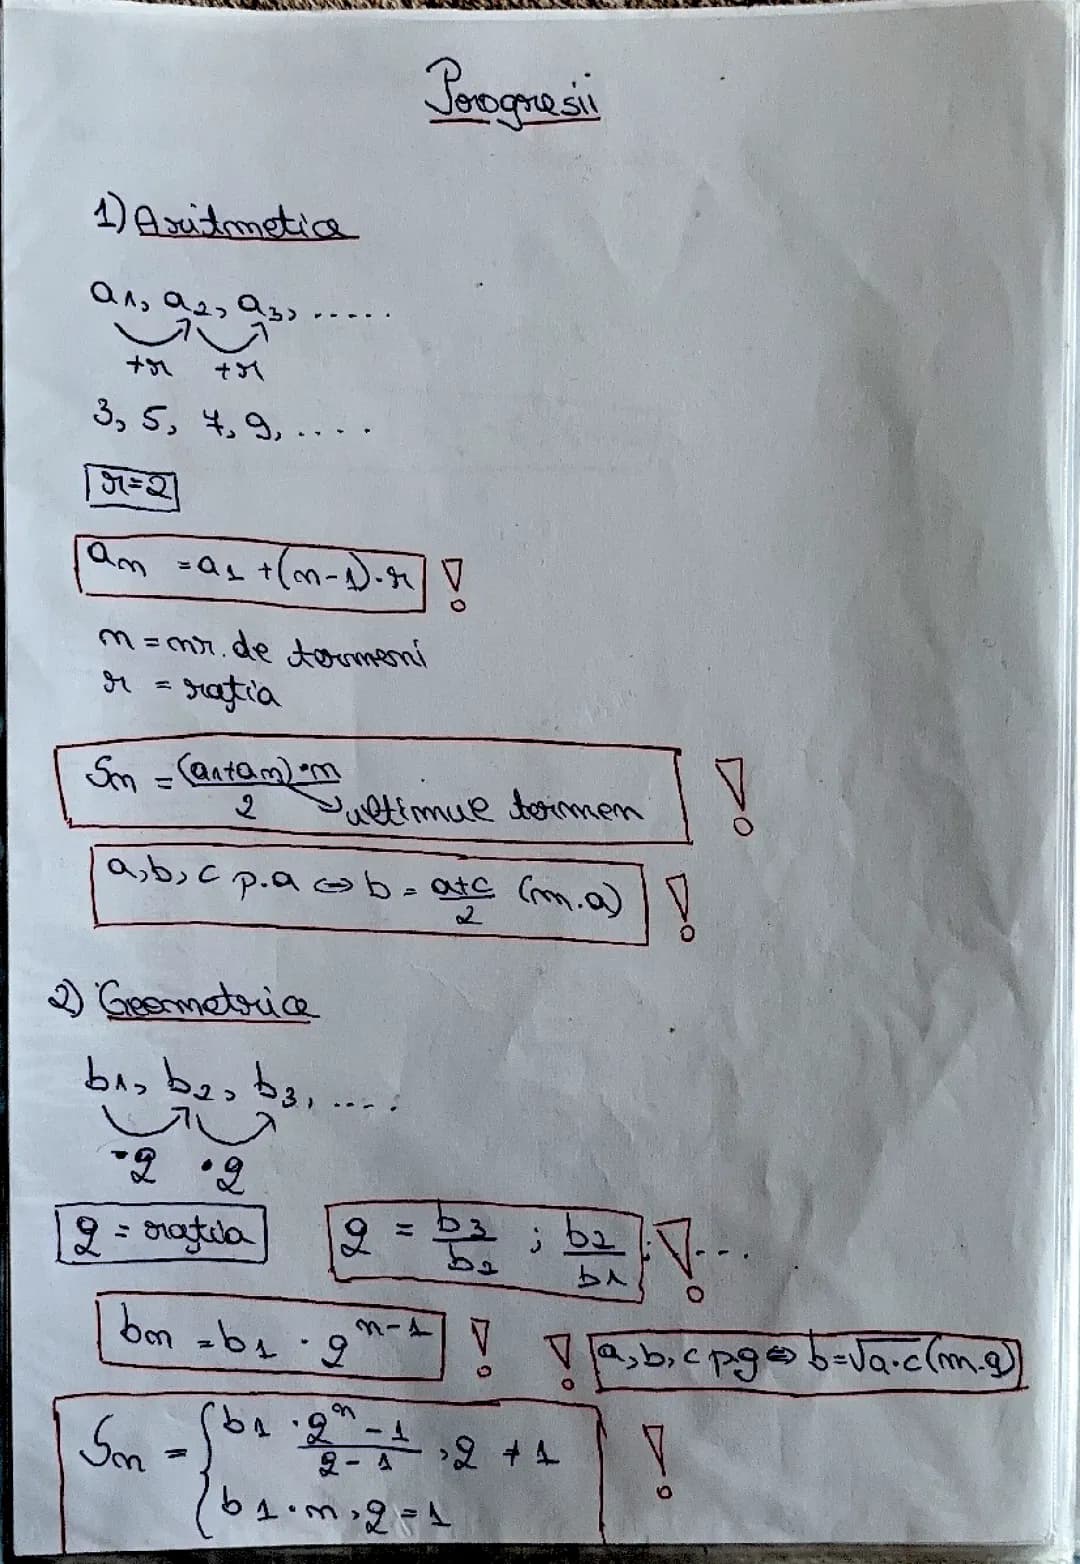 Progresii
1) Aritmetice
a1, a2, a3, .....
+r +r
3, 5, 7, 9, ....
r=2
an = a1 + (n-1)·r !
n = nr. de termeni
r = rația
Sn = (a1+an)·n / 2 ultimul termen !
a, b, c p.a ⇔ b = a+c / 2 (m.a) !
2) Geometrice
b1, b2, b3, ....
·q ·q
q = rația q = b3/b2 ; b2/b1 ; ! ...
bn = b1 · q^n-1 ! ! a, b, c p.g ⇔ b=√a·c (m.g)
Sn = { b1 · q^n - 1 / q - 1 , q ≠ 1 !
b1·n, q = 1